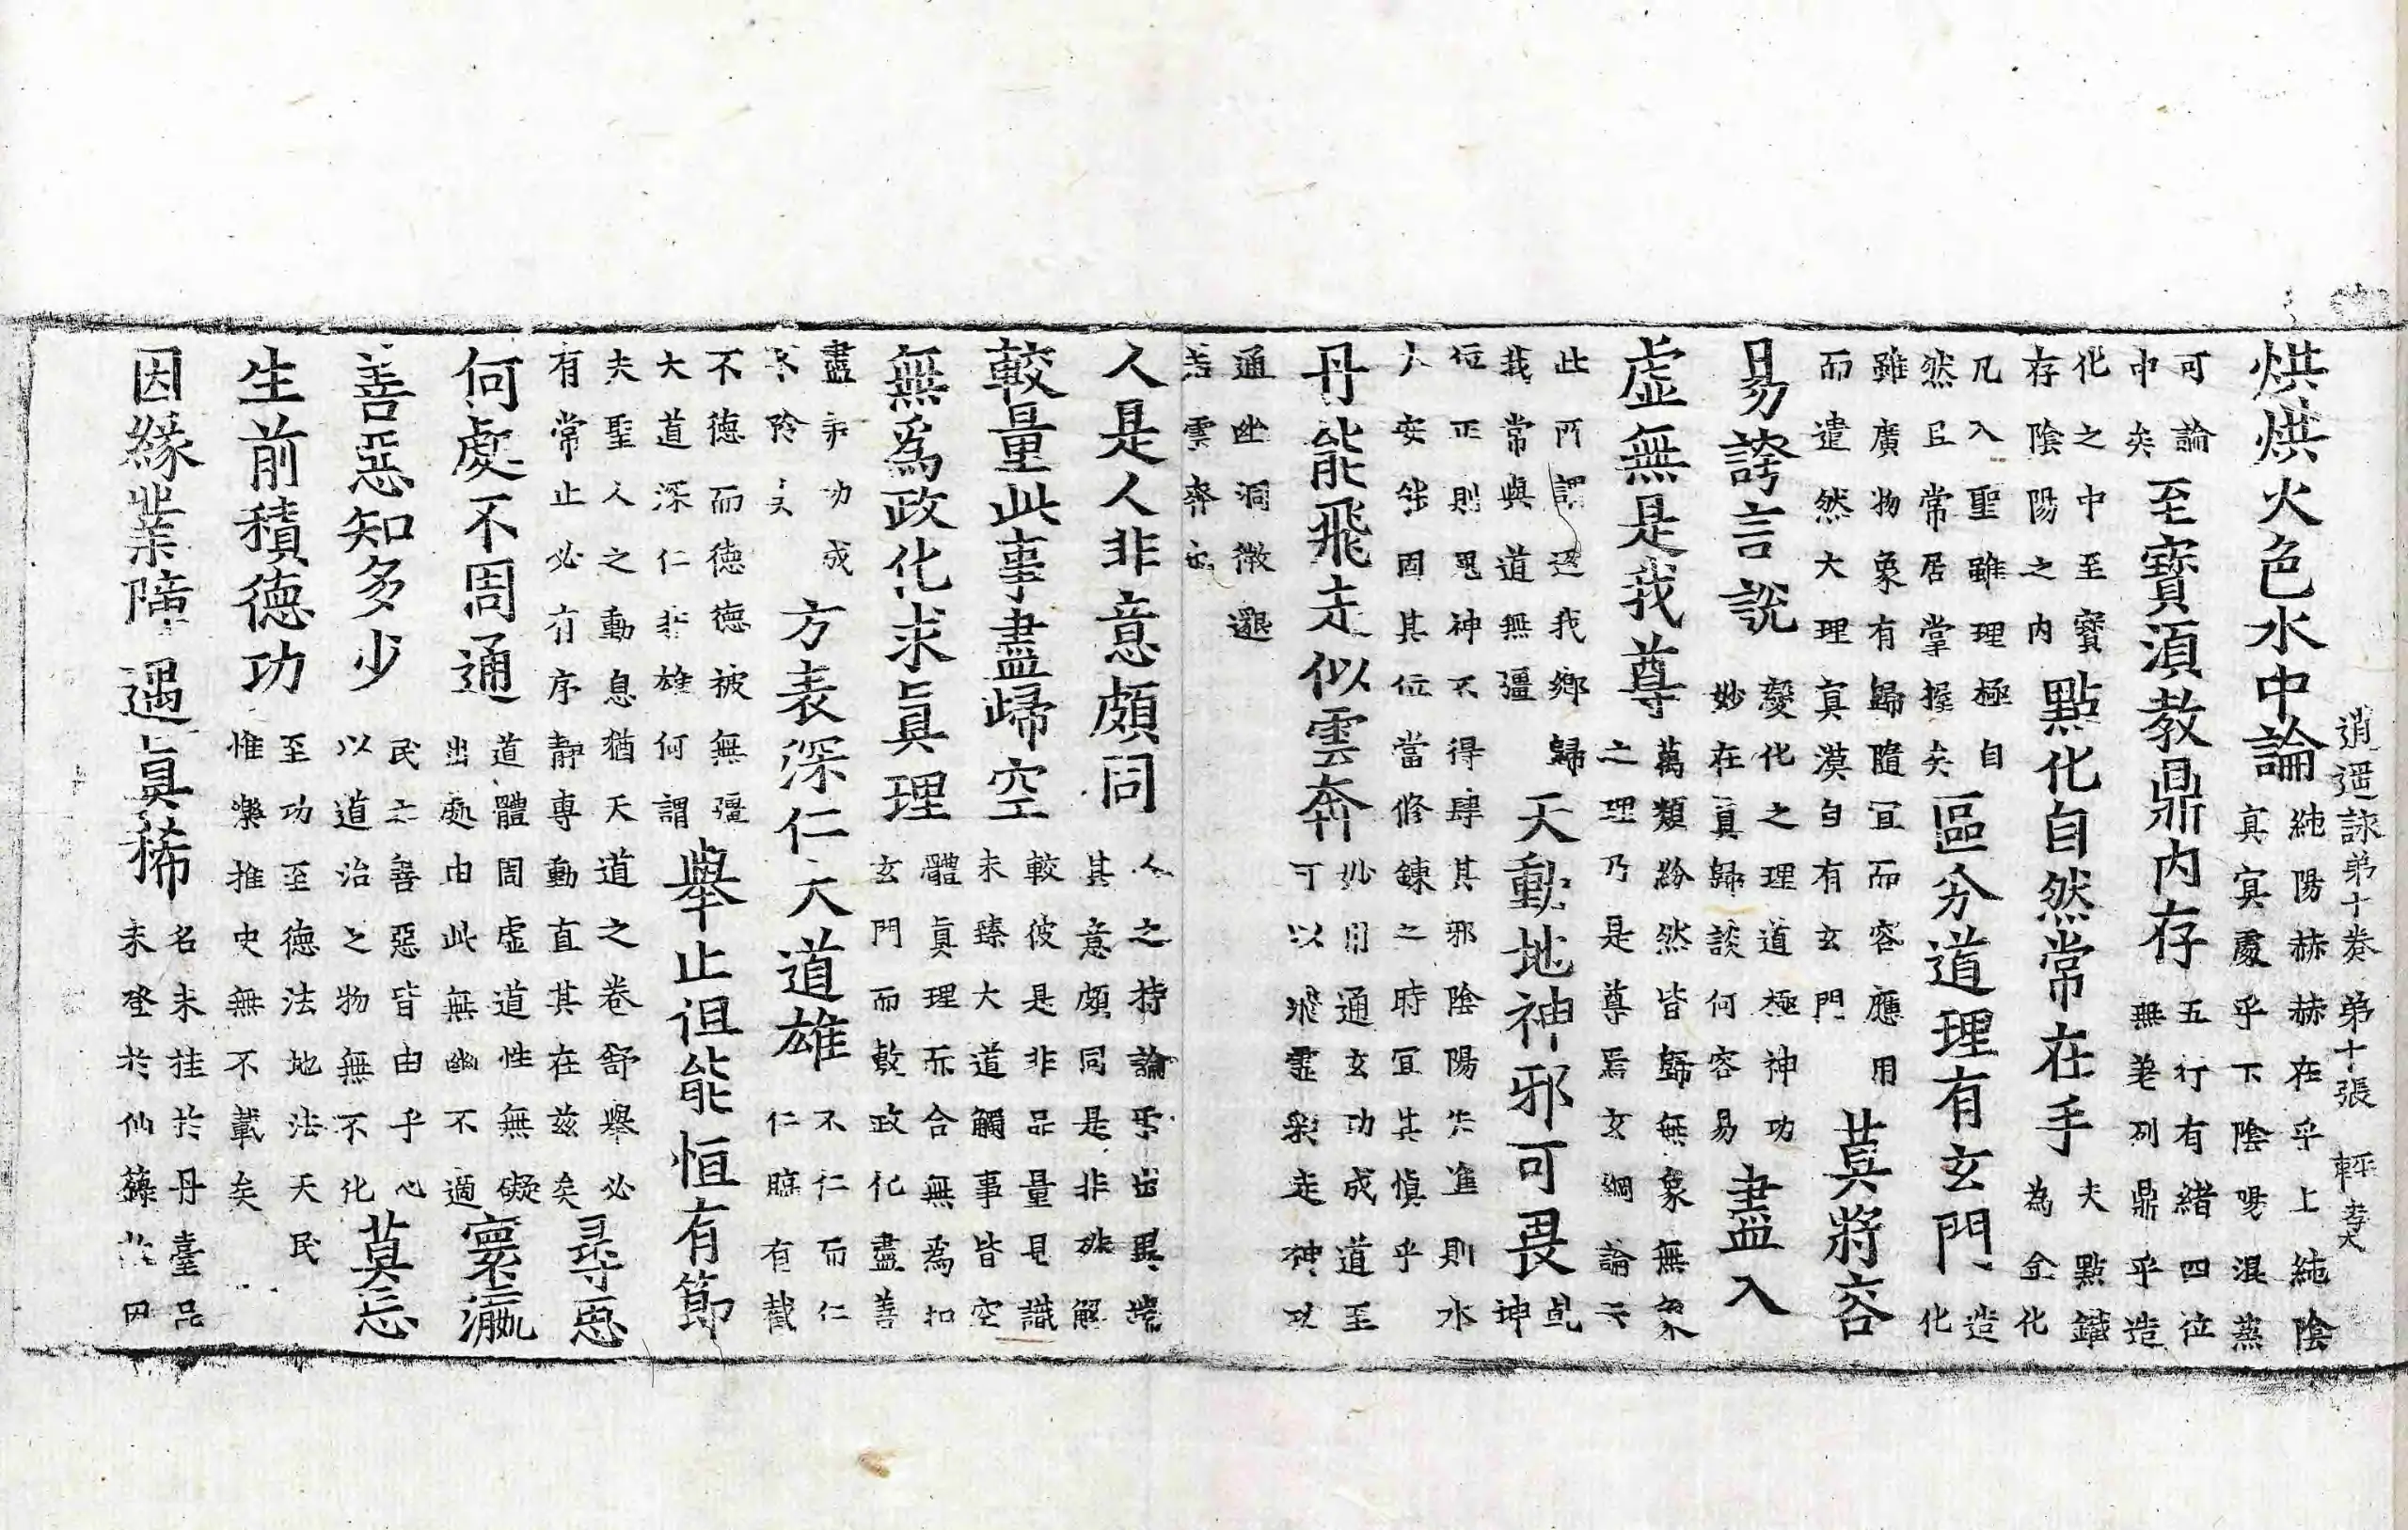 逍遥詠第十卷 第十張 軿
烘烘火色水中論 純陽赫赫在乎上純陰真㝠處乎下陰陽混蒸
可論中矣 至寶須教鼎内存 五行有緒四位無差列鼎乎造
化之中至寶存陰陽之内 點化自然常在手 夫點鐵為金化
凡入聖雖理極自然且常居掌握矣 區分道理有玄門 造化
雖廣物象有歸隨冝而容應用而遣然大理寘漠自有玄門 莫將容
易誇言說 變化之理道極神功妙在真歸談何容易 盡入
虛無是我尊 萬類紛然皆歸無象無象之理乃是尊焉玄綱論云
此所謂返我鄉歸我常與道無彊 天動地神邪可畏 神
位正則鬼神不得肆其邪陰陽失進則水火安能固其位當修鍊之時冝其慎乎
丹能飛走似雲奔 妙用通玄功成道至可以飛靈彩走神以
通幽洞微
人是人非意頗同 人之持論其意頗同是非解
較量此事盡歸空 較彼是非品量見識未臻大道觸事皆空
無爲政化求眞理 體眞理而合無為扣玄門而敷政化盡善
盡功成不 方表深仁大道雄 不仁而仁仁臨有截
不德而德德被無彊大道深仁非雄何謂 舉止詎能恒有節
夫聖人之動息猶天道之卷舒舉必有常止必有序靜專動直其在茲矣 尋思
何處不周通 道體周虛道性無礙出處由此無幽不適 寰瀛
善惡知多少 民之善惡皆由乎心以道治之物無不化 莫忘
生前積德功 至功至德法地法天民惟樂推史無不載矣
因緣業障遇眞稀 名未挂於丹臺品未登於仙籙 因